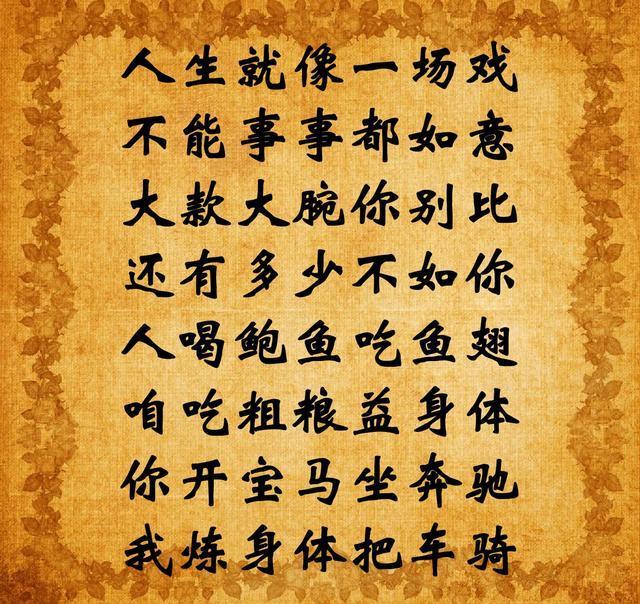 人生就像一场戏
不能事事都如意
大款大腕你别比
还有多少不如你
人喝鲍鱼吃鱼翅
咱吃粗粮益身体
你开宝马坐奔驰
我炼身体把车骑